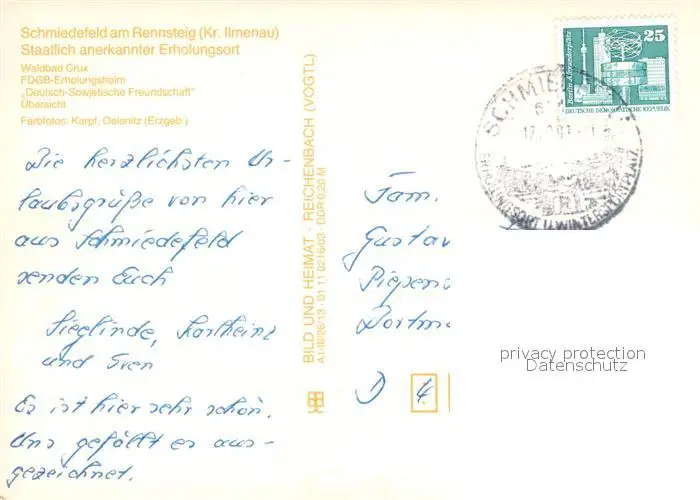 Schmiedefeld am Rennsteig (Kr. Ilmenau)
Staatlich anerkannter Erholungsort
Waldbad Crux
FDGB-Erholungsheim
„Deutsch-Sowjetische Freundschaft"
Übersicht
Farbfotos: Karpf, Oelsnitz (Erzgeb.)
Die herzlichsten Ur-
laubsgrüße von hier
aus Schmiedefeld
senden Euch
Sieglinde, Karlheinz
und Sven
Es ist hier sehr schön.
Uns gefällt es aus-
gezeichnet.
BILD UND HEIMAT · REICHENBACH (VOGTL)
A1/III/26/13 · 01 11 0216/03 · DDR 0,20 M
25
Berlin-Alexanderplatz
DEUTSCHE DEMOKRATISCHE REPUBLIK
SCHMIE
ERHOLUNGSORT U. WINTERSPORTPLATZ
Fam.
Gustav
Piepens
Dortm
D 4
privacy protection
Datenschutz